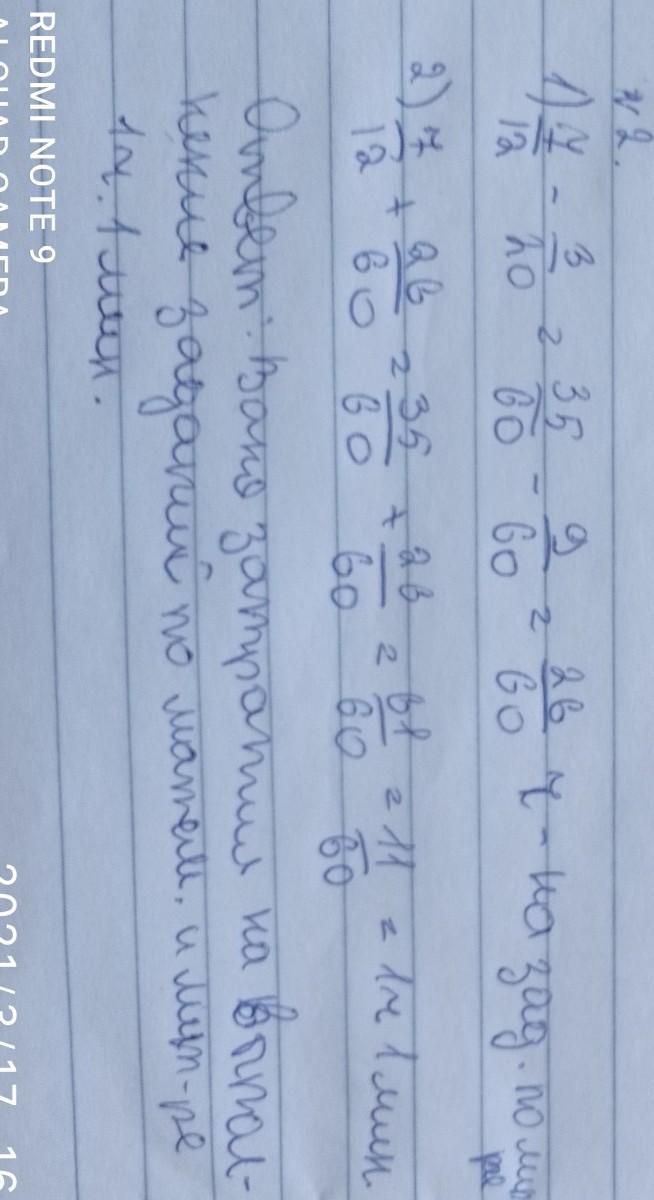 №2.
1) 7/12 - 3/20 = 35/60 - 9/60 = 26/60 ч - на зад. по лит-ре
2) 7/12 + 26/60 = 35/60 + 26/60 = 61/60 = 1 1/60 = 1ч 1 мин.
Ответ: Ваня затратил на выпол-
нение заданий по матем. и лит-ре
1ч. 1 мин.
REDMI NOTE 9
AI QUAD CAMERA
2021/3/17 16